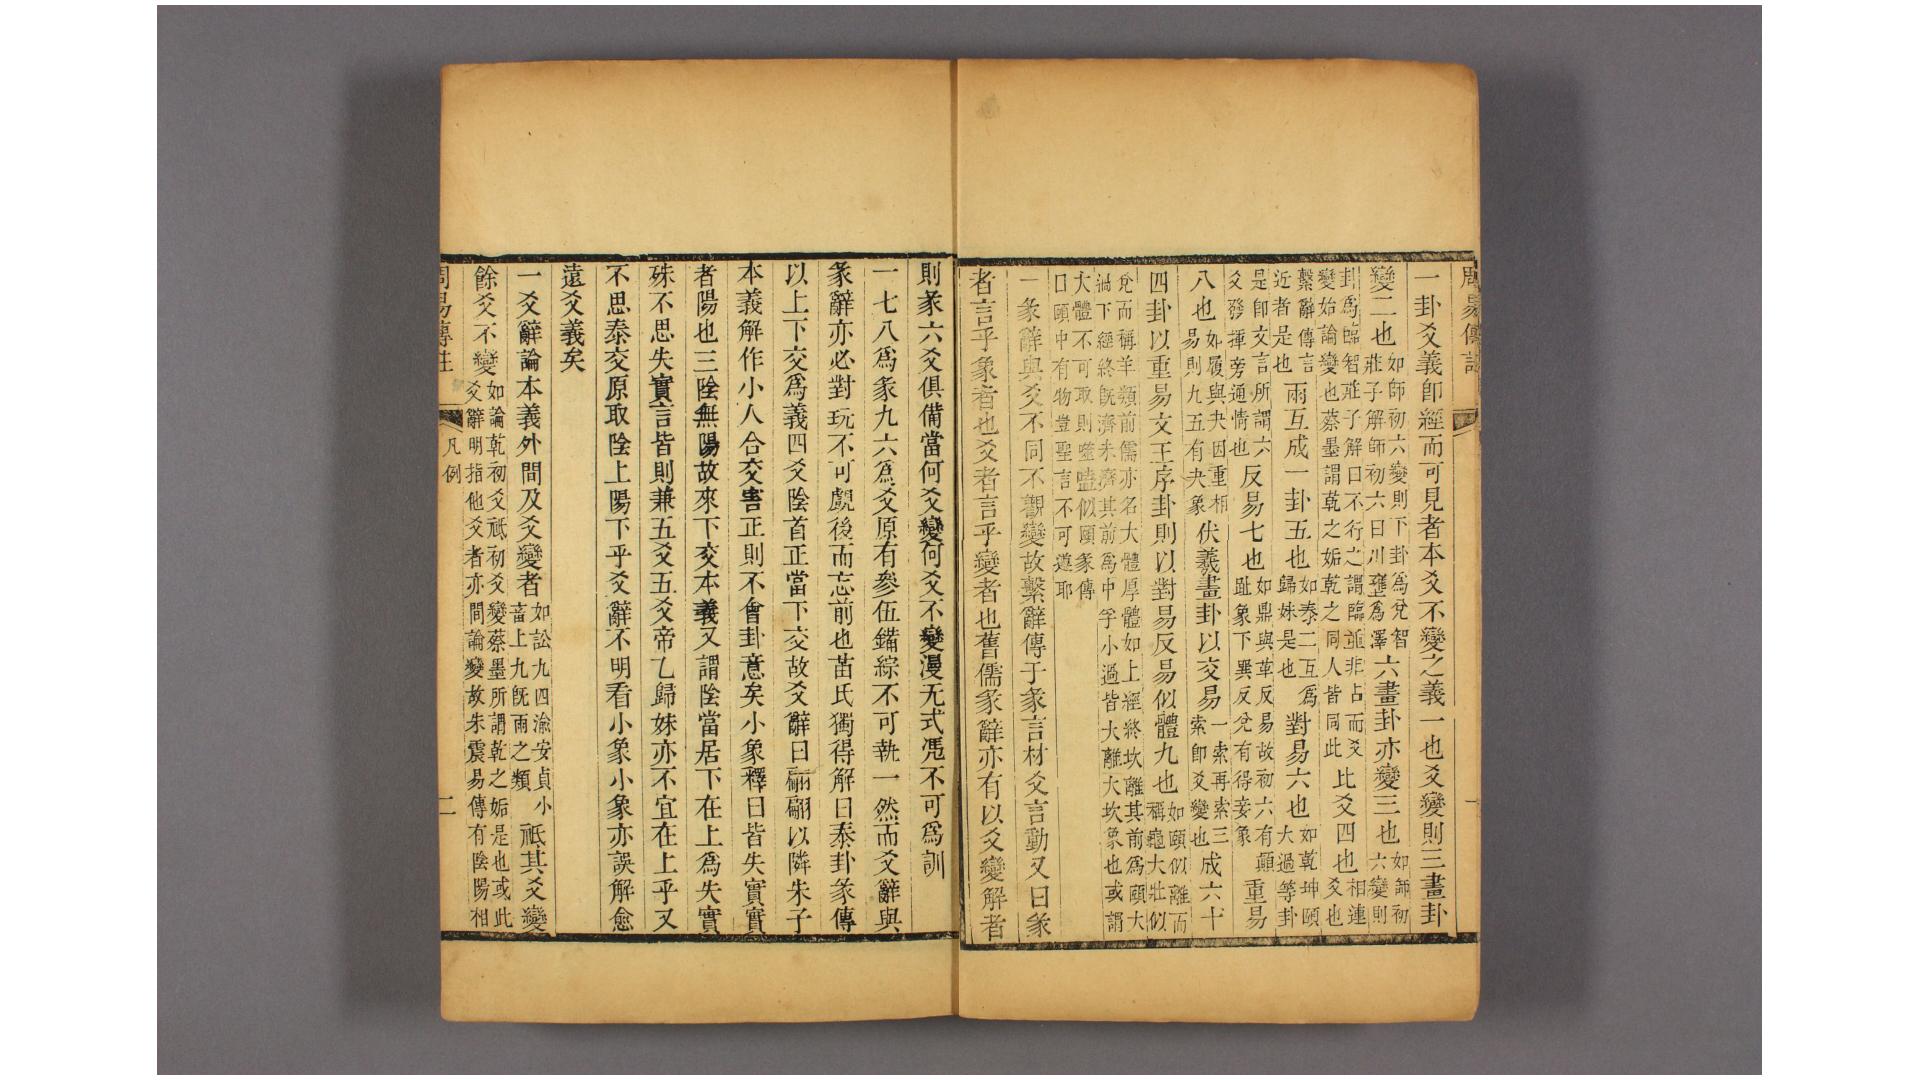 周易傳註
一
一卦爻義卽經而可見者本爻不變之義一也爻變則三畫卦
變二也如師初六變則下卦爲兌智莊子解師初六曰川壅爲澤六畫卦亦變三也如師初六變則
卦爲臨智莊子解曰不行之謂臨並非占而爻變始論變也蔡墨謂乾之姤乾之同人皆同此比爻四也相連爻也
繫辭傳言近者是也兩互成一卦五也如泰二互爲歸妹是也對易六也如乾坤頤大過等卦
是卽文言所謂六爻發揮旁通情也反易七也如鼎與革反易故初六有顛趾象下巽反兌有得妾象重易
八也如履與夬因重相易則九五有夬象伏羲畫卦以交易一索再索三索卽爻變也成六十
四卦以重易文王序卦則以對易反易似體九也如頤似離而稱龜大壯似
兌而稱羊類前儒亦名大體厚體如上經終坎離其前爲頤大過下經終旣濟未濟其前爲中孚小過皆大離大坎象也或謂
大體不可取則噬嗑似頤彖傳曰頤中有物豈聖言不可遵耶
一彖辭與爻不同不觀變故繫辭傳于彖言材爻言動又曰彖
者言乎象者也爻者言乎變者也舊儒彖辭亦有以爻變解者
則彖六爻俱備當何爻變何爻不變漫无式憑不可爲訓
一七八爲彖九六爲爻原有參伍錯綜不可執一然而爻辭與
彖辭亦必對玩不可覷後而忘前也苗氏獨得解曰泰卦彖傳
以上下交爲義四爻陰首正當下交故爻辭曰翩翩以隣朱子
本義解作小人合交害正則不會卦意矣小象釋曰皆失實實
者陽也三陰無陽故來下交本義又謂陰當居下在上爲失實
殊不思失實言皆則兼五爻五爻帝乙歸妹亦不宜在上乎又
不思泰交原取陰上陽下乎爻辭不明看小象小象亦誤解愈
遠爻義矣
一爻辭論本義外間及爻變者如訟九四渝安貞小畜上九旣雨之類祇其爻變
餘爻不變如論乾初爻祇初爻變蔡墨所謂乾之姤是也或此爻辭明指他爻者亦間論變故朱震易傳有陰陽相
周易傳註
凡例
二